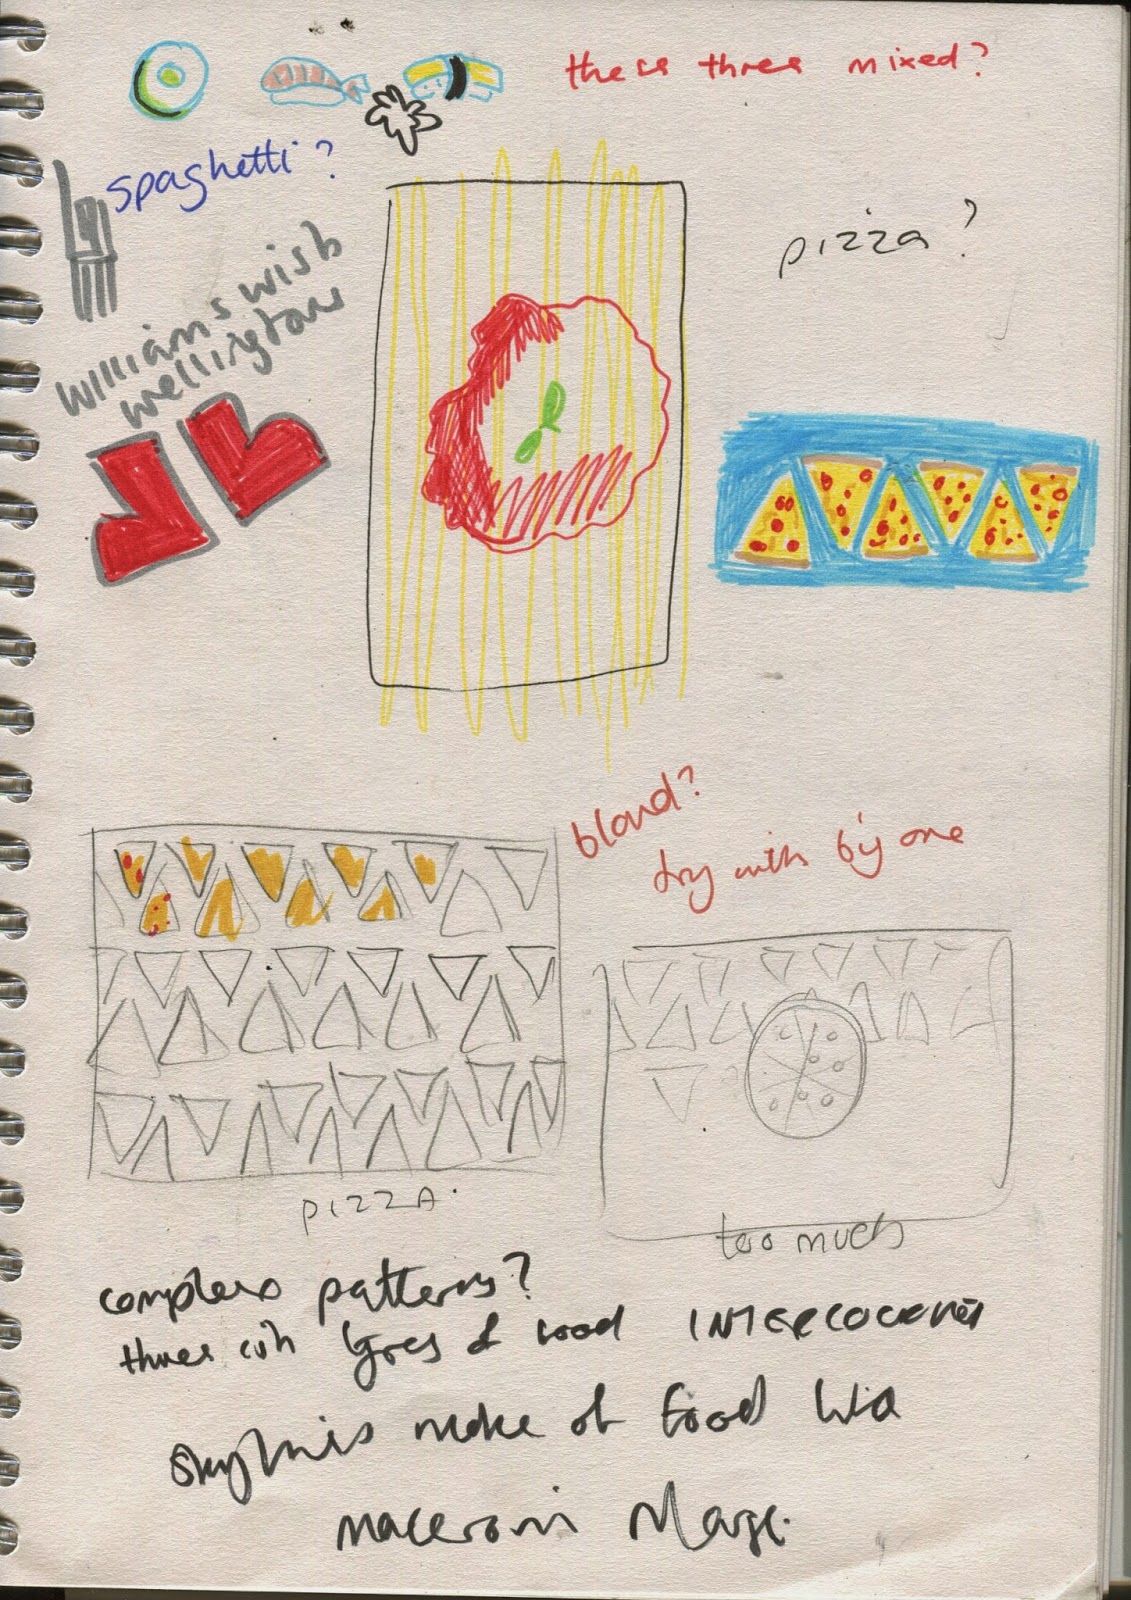 these three mixed?
spaghetti?
pizza?
williams wish
wellingtons
bland?
try with big one
PIZZA.
too much
complex patterns?
three types of food
make of food like
macaroni Marge.